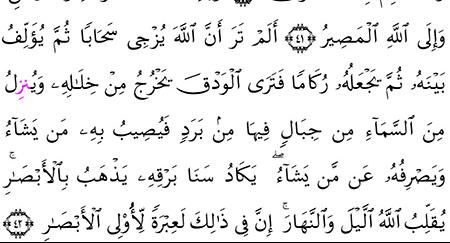 وَإِلَى ٱللَّهِ ٱلْمَصِيرُ ﴿٤١﴾ أَلَمْ تَرَ أَنَّ ٱللَّهَ يُزْجِى سَحَابًا ثُمَّ يُؤَلِّفُ
بَيْنَهُۥ ثُمَّ يَجْعَلُهُۥ رُكَامًا فَتَرَى ٱلْوَدْقَ يَخْرُجُ مِنْ خِلَٰلِهِۦ وَيُنزِلُ
مِنَ ٱلسَّمَآءِ مِن جِبَالٍ فِيهَا مِنۢ بَرَدٍ فَيُصِيبُ بِهِۦ مَن يَشَآءُ
وَيَصْرِفُهُۥ عَن مَّن يَشَآءُۖ يَكَادُ سَنَا بَرْقِهِۦ يَذْهَبُ بِٱلْأَبْصَٰرِۚ
يُقَلِّبُ ٱللَّهُ ٱلَّيْلَ وَٱلنَّهَارَۚ إِنَّ فِى ذَٰلِكَ لَعِبْرَةً لِّأُو۟لِى ٱلْأَبْصَٰرِ ﴿٤٢﴾